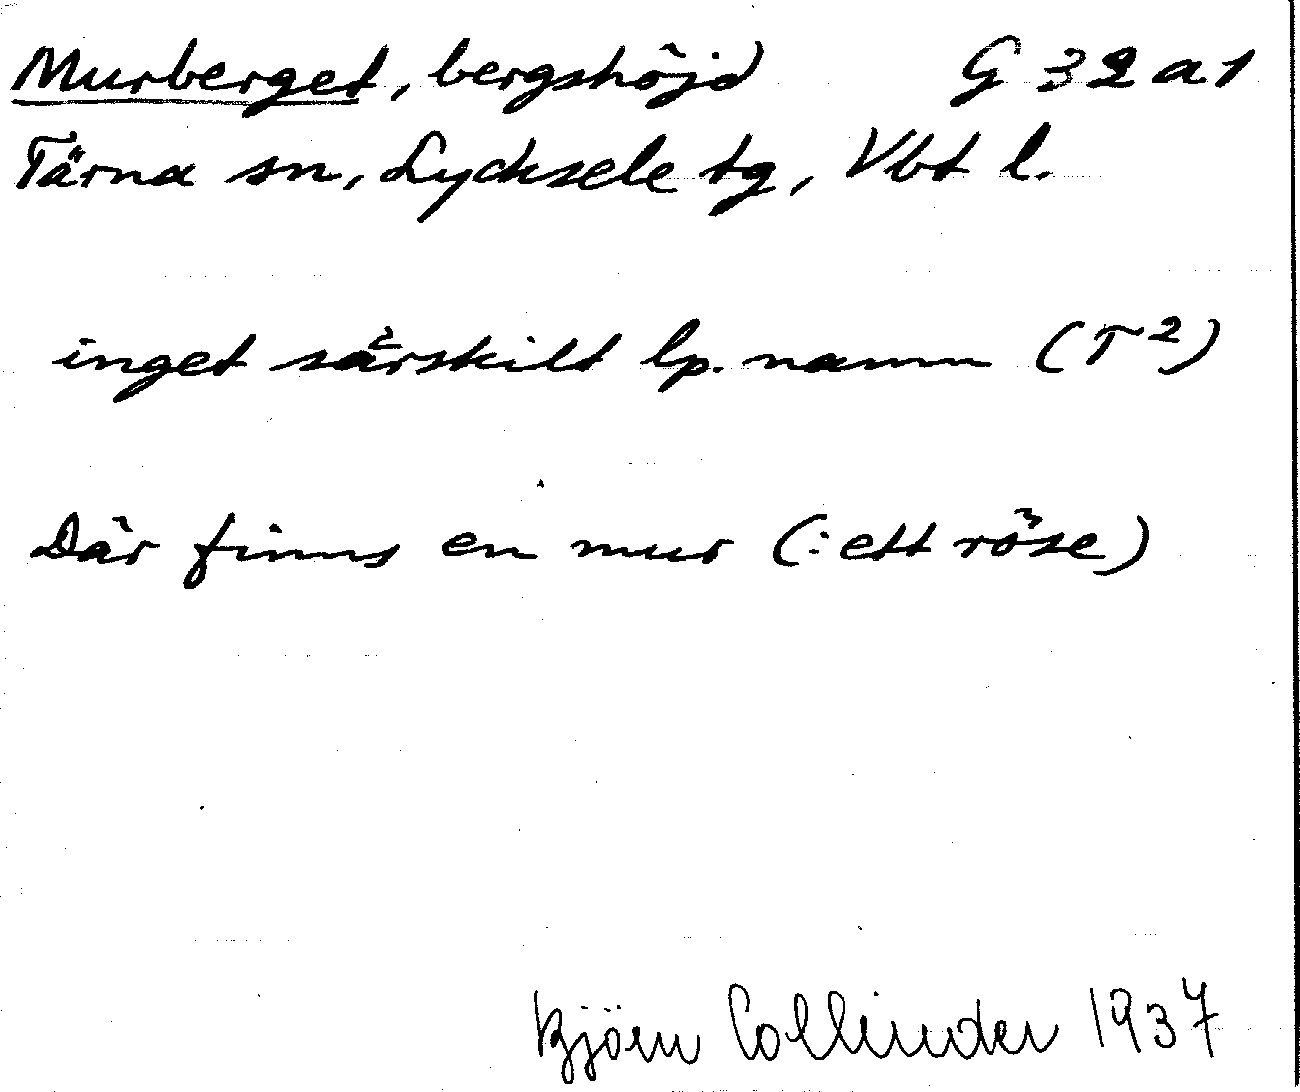 Murberget, bergshöjd G 32 a 1
Tärna sn, Lycksele tg, Vbt l.
inget särskilt lp. namn (T²)
Där finns en mur (: ett röse)
Björn Collinder 1937